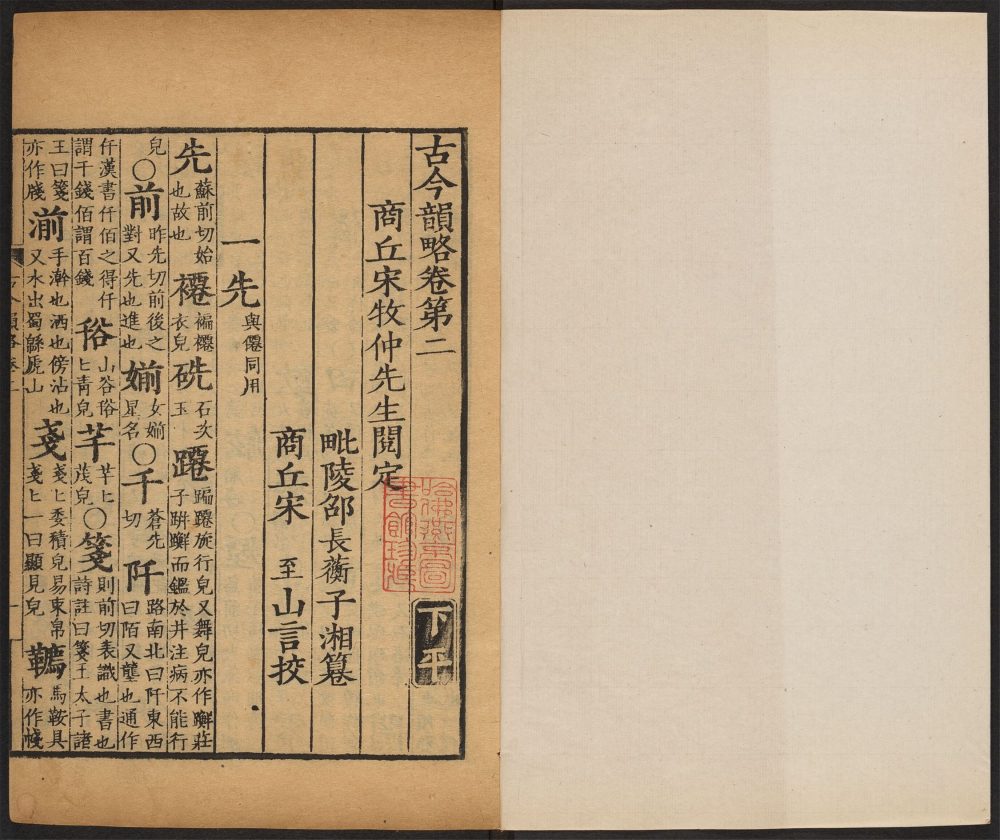 古今韻略卷第二 下平
商丘宋牧仲先生閱定
哈佛燕京圖書館珍藏
毗陵邵長蘅子湘篹
商丘宋 至山言挍
一先 與僊同用
先 蘇前切始也故也 褼 褊褼衣皃 石次玉 蹮 蹁蹮旅行皃又舞皃亦作躚莊子跰躚而鑑於井注病不能行
皃○前 昨先切前後之對又先也進也 媊 女媊星名○千 蒼先切 阡 路南北曰阡東西曰陌又壟也通作
仟漢書仟佰之得仟謂千錢佰謂百錢 谸 山谷谸匕青皃 芊 芊匕茂皃○箋 則前切表識也書也詩註曰箋王太子諸
王曰箋亦作牋 湔 手澣也洒也傍沾也又水出蜀緜虒山 戔 戔匕委積皃易束帛戔匕一曰顯見皃 韉 馬鞍具亦作